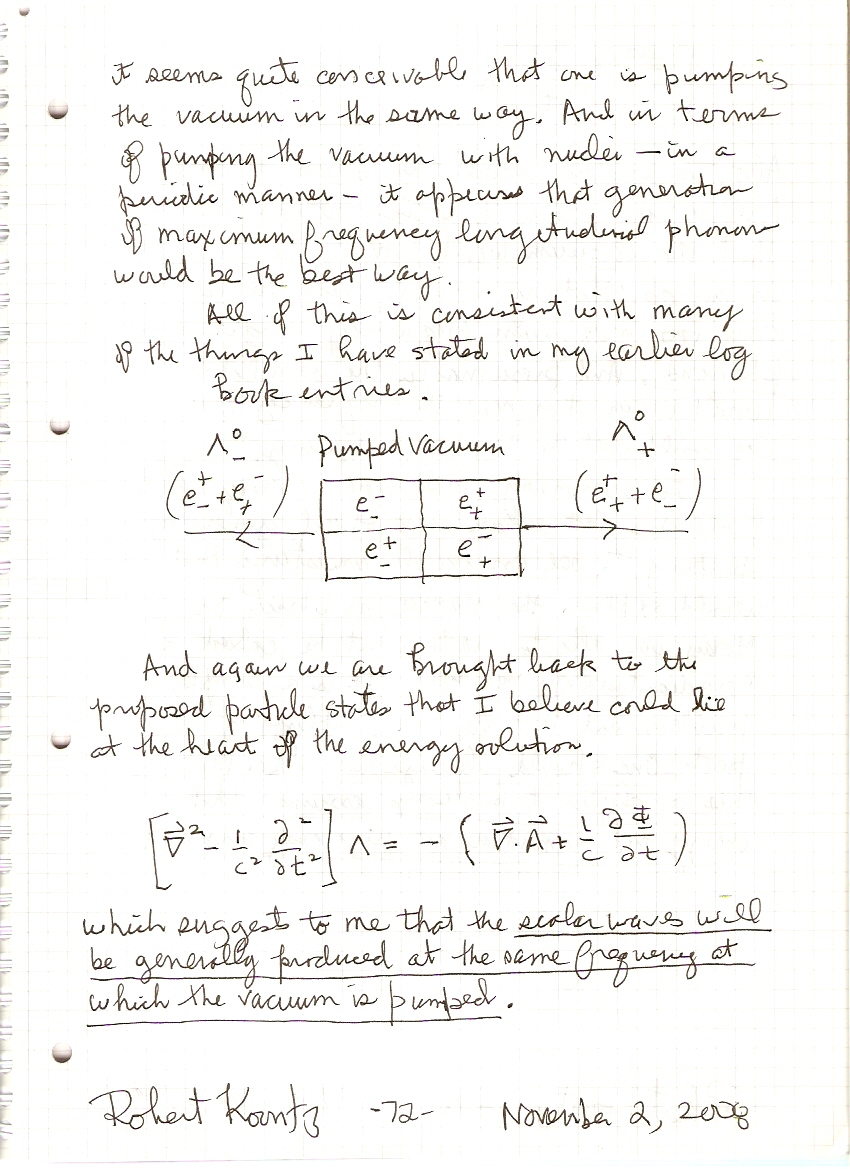 it seems quite conceivable that one is pumping
the vacuum in the same way. And in terms
of pumping the vacuum with nuclei — in a
periodic manner — it appears that generation
of maximum frequency longitudinal phonons
would be the best way.
All of this is consistent with many
of the things I have stated in my earlier log
book entries.
Λ⁰₋ Pumped Vacuum Λ⁰₊
(e⁺₋ + e⁻₊) e⁻₋ e⁺₊ (e⁺₊ + e⁻₋)
e⁺₋ e⁻₊
And again we are brought back to the
proposed particle states that I believe could lie
at the heart of the energy solution.
[∇⃗² - 1/c² ∂²/∂t²] Λ = - (∇⃗·A⃗ + 1/c ∂Φ/∂t)
which suggest to me that the scalar waves will
be generally produced at the same frequency at
which the vacuum is pumped.
Robert Koontz -72- November 2, 2008